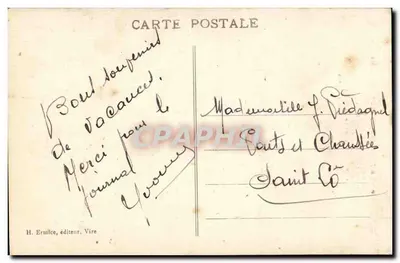 CARTE POSTALE
Bons souvenirs
de vacances.
Merci pour le
journal
Yvonne
Mademoiselle J. Piédagnel
Ponts et Chaussées
Saint Lô
H. Ermice, éditeur, Vire
CPARAMA